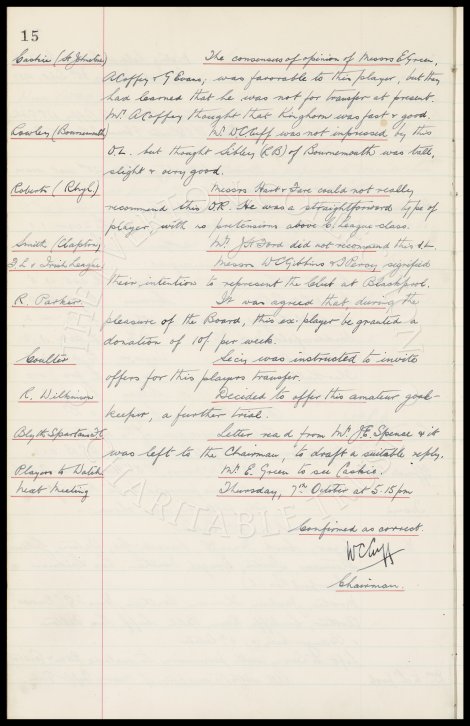 15
Caskie (St Johnstone) The consensus of opinion of Messrs E Green,
A Coffey & G Evans, was favorable to this player, but they
had learned that he was not for transfer at present.
Mr. A Coffey thought that Kinghorn was fast & good.
Cowley (Bournemouth) Mr. W C Cuff was not impressed by this
O.L. but thought Sibley (R.B) of Bournemouth was tall,
slight & very good.
Roberts (Rhyl) Messrs Hart & Fare could not really
recommend this O.R. He was a straightforward type of
player, with no pretensions above C. League class.
Smith (Clapton) Mr. J H Fare did not recommend this
F.L. v Irish League Messrs W C Gibbins & T Percy signified
their intention to represent the Club at Blackpool.
R. Parker. It was agreed that during the
pleasure of the Board, this ex-player be granted a
donation of 10/- per week.
Coulter Secy was instructed to invite
offers for this players transfer.
R. Wilkinson Decided to offer this amateur goal-
keeper, a further trial.
Blyth Spartans Letter read from Mr. J.E. Spence & it
was left to the Chairman, to draft a suitable reply.
Players to Watch Mr. E. Green to see Caskie.
Next Meeting Thursday, 7th October at 5-15pm
Confirmed as correct.
W C Cuff
Chairman.